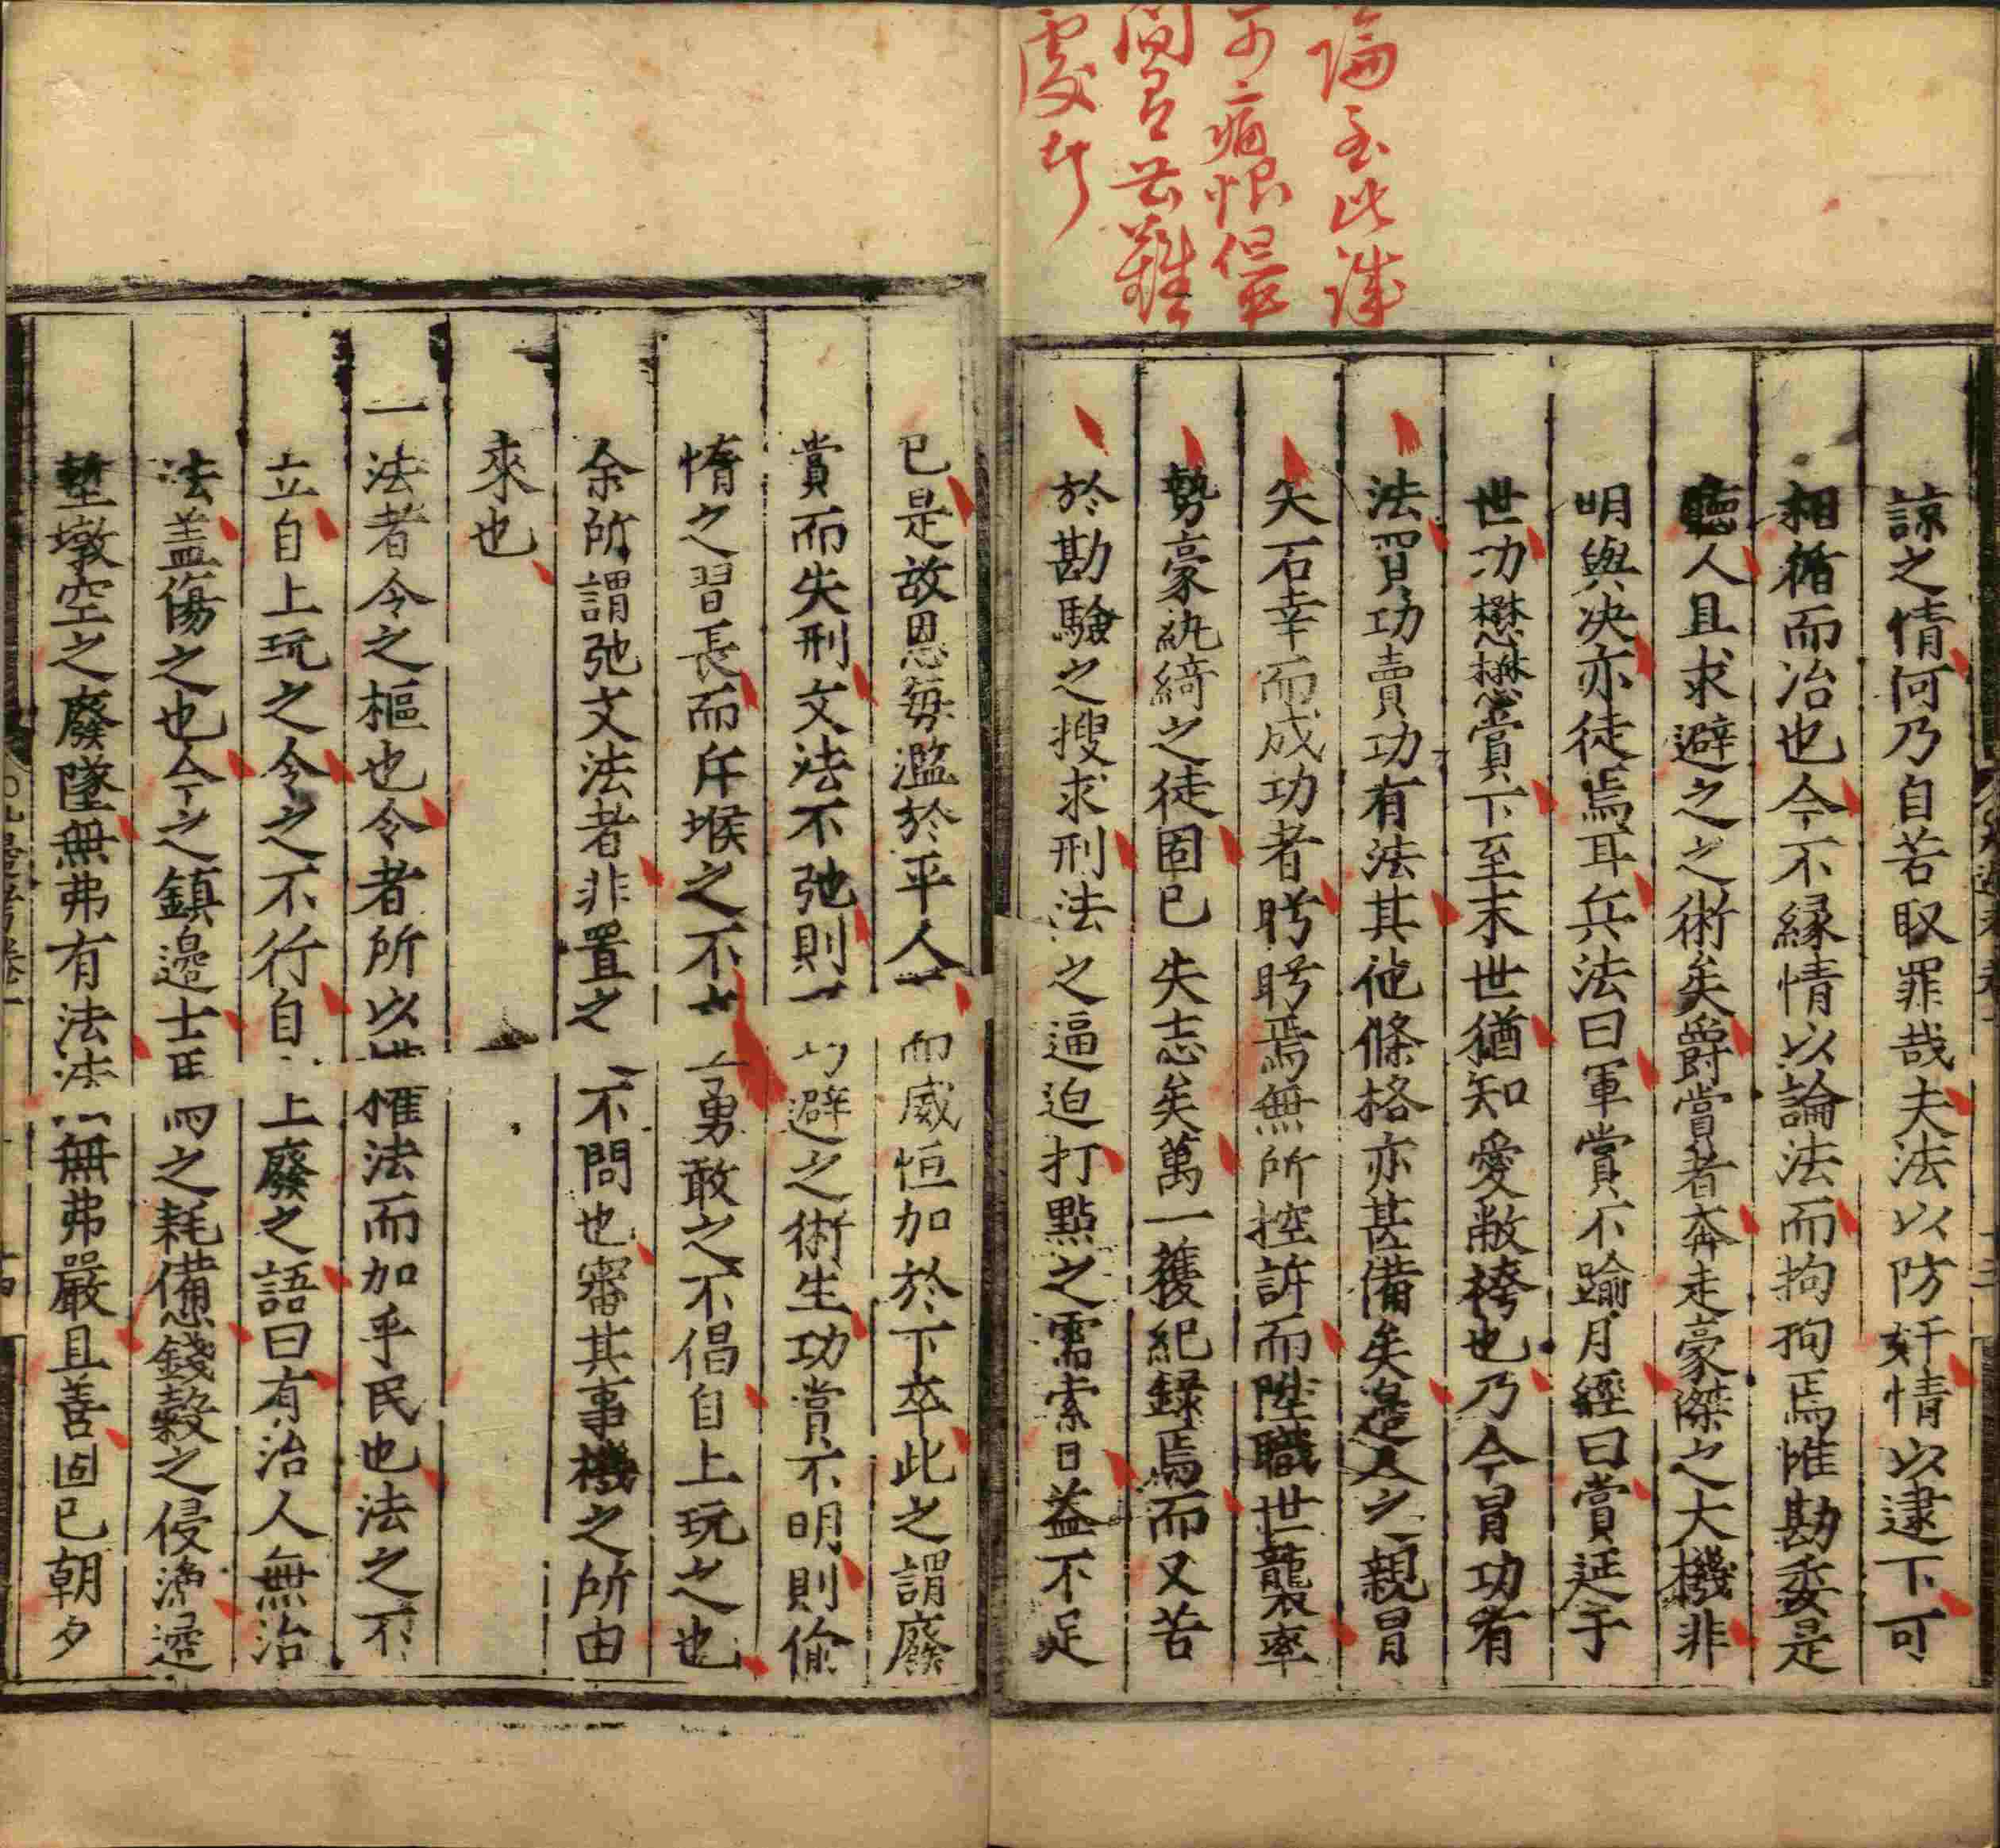 論至此誠
可痛恨但最
閒者甚難
處耳
諒之情何乃自若取罪哉夫法以防奸情以逮下可
相循而治也今不緣情以論法而拘拘焉惟勘委是
聽人且求避之之術矣爵賞者奔走豪傑之大機非
明與决亦徒焉耳兵法曰軍賞不踰月經曰賞延于
世功懋懋賞下至末世猶知愛敝袴也乃今冒功有
法買功賣功有法其他條格亦甚備矣邉人之親冒
矢石幸而成功者盻盻焉無所控訴而陞職世襲率
勢豪紈綺之徒固已失志矣萬一獲紀録焉而又苦
於勘驗之搜求刑法之逼迫打點之需索日益不足
已是故恩毎濫於平人而威恒加於下卒此之謂廢
賞而失刑文法不弛則避之術生功賞不明則偷
惰之習長而斥堠之不勇敢之不倡自上玩之也
余所謂弛文法者非置之不問也審其事機之所由
來也
一法者令之樞也令者所以惟法而加乎民也法之不
立自上玩之令之不行自上廢之語曰有治人無治
法盖傷之也今之鎮邉士馬之耗憊錢穀之侵漁邉
塹墩空之廢墜無弗有法法無弗嚴且善固已朝夕